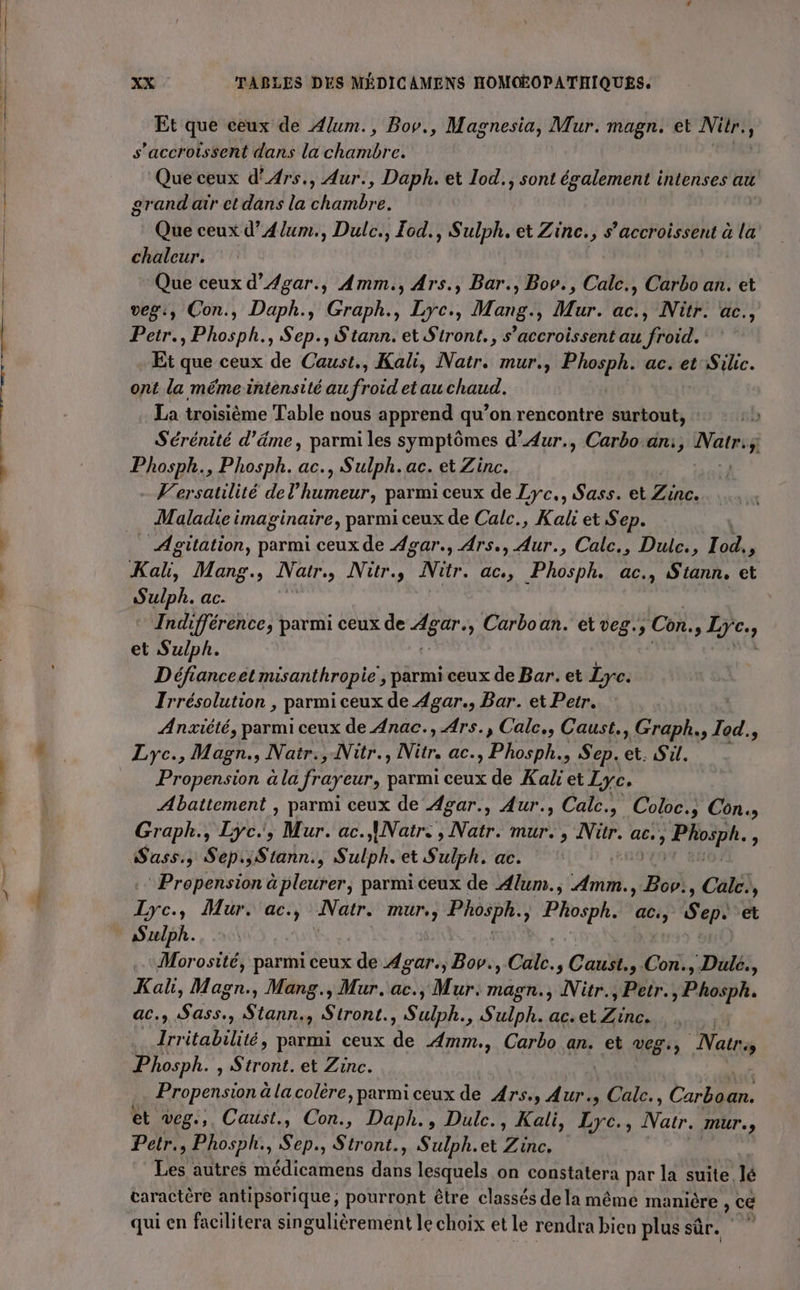 XX TABLES DES MÉDICAMENS HOMŒOPATHIQUES.
Et que ceux de Alum., Bov., Magnesia, Mur. magn. et Nitr.,
s'accroissent dans la chambre.
Que ceux d'Ars., Aur., Daph. et Iod., sont également intenses au
grand air et dans la chambre.
Que ceux d'Alum., Dulc., Iod., Sulph. et Zinc., s'accroissent à la
chaleur.
Que ceux d'Agar., Amm., Ars., Bar., Bov., Calc., Carbo an. et
veg., Con., Daph., Graph., Lyc., Mang., Mur. ac., Nitr. ac.,
Petr., Phosph., Sep., Stann. et Stront., s'accroissent au froid.
Et que ceux de Caust., Kali, Natr. mur., Phosph. ac. et Silic.
ont la même intensité au froid et au chaud.
La troisième Table nous apprend qu'on rencontre surtout,
Sérénité d'âme, parmi les symptômes d'Aur., Carbo an., Natr.,
Phosph., Phosph. ac., Sulph. ac. et Zinc.
Versatilité de l'humeur, parmi ceux de Lyc., Sass. et Zinc.
Maladie imaginaire, parmi ceux de Calc., Kali et Sep.
Agitation, parmi ceux de Agar., Ars., Aur., Calc., Dulc., Iod.,
Kali, Mang., Natr., Nitr., Nitr. ac., Phosph. ac., Stann. et
Sulph. ac.
Indifférence, parmi ceux de Agar., Carbo an. et veg., Con., Lyc.,
et Sulph.
Défiance et misanthropie, parmi ceux de Bar. et Lyc.
Irrésolution, parmi ceux de Agar., Bar. et Petr.
Anxiété, parmi ceux de Anac., Ars., Calc., Caust., Graph., Iod.,
Lyc., Magn., Natr., Nitr., Nitr. ac., Phosph., Sep. et. Sil.
Propension à la frayeur, parmi ceux de Kali et Lyc.
Abattement, parmi ceux de Agar., Aur., Calc., Coloc., Con.,
Graph., Lyc., Mur. ac., Natr., Natr. mur., Nitr. ac., Phosph.,
Sass., Sep., Stann., Sulph. et Sulph. ac.
Propension à pleurer, parmi ceux de Alum., Amm., Bov., Calc.,
Lyc., Mur. ac., Natr. mur., Phosph., Phosph. ac., Sep. et
Sulph.
Morosité, parmi ceux de Agar., Bov., Calc., Caust., Con., Dulc.,
Kali, Magn., Mang., Mur. ac., Mur. magn., Nitr., Petr., Phosph.
ac., Sass., Stann., Stront., Sulph., Sulph. ac. et Zinc.
Irritabilité, parmi ceux de Amm., Carbo an. et veg., Natr.,
Phosph., Stront. et Zinc.
Propension à la colère, parmi ceux de Ars., Aur., Calc., Carbo an.
et veg., Caust., Con., Daph., Dulc., Kali, Lyc., Natr. mur.,
Petr., Phosph., Sep., Stront., Sulph. et Zinc.
Les autres médicamens dans lesquels on constatera par la suite lé
caractère antipsorique, pourront être classés de la même manière, ce
qui en facilitera singulièrement le choix et le rendra bien plus sûr.